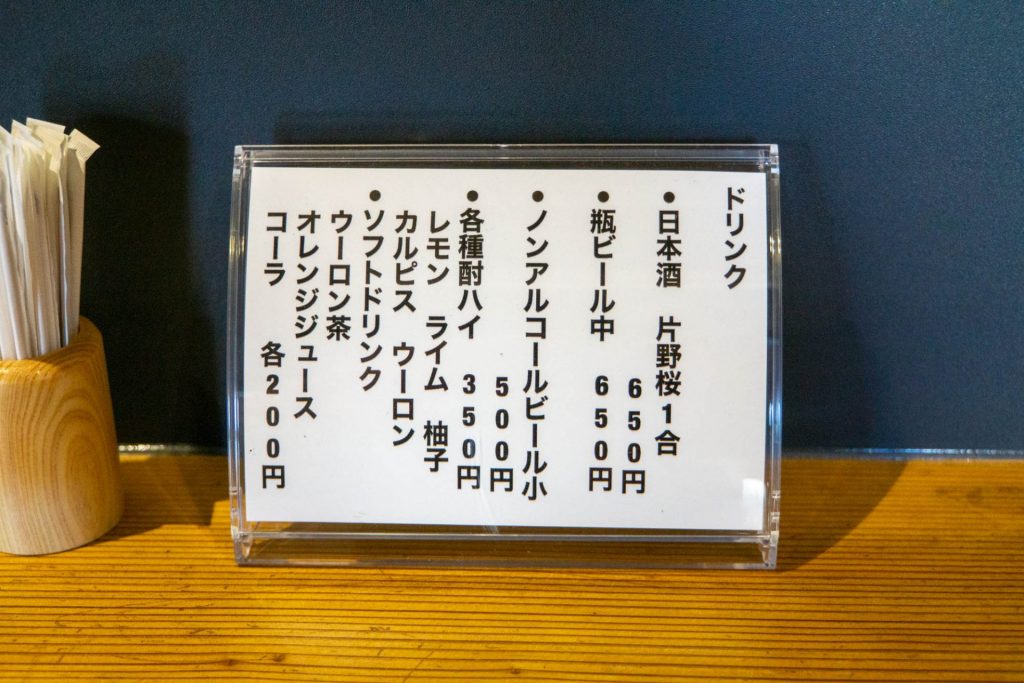 ドリンク
●日本酒 片野桜1合
650円
●瓶ビール中 650円
●ノンアルコールビール小
500円
●各種酎ハイ 350円
レモン ライム 柚子
カルピス ウーロン
●ソフトドリンク
ウーロン茶
オレンジジュース
コーラ 各200円